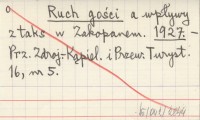 Ruch gości a wpływy
z taks w Zakopanem. 1927. –
Prz. Zdroj-Kąpiel. i Przew. Turyst.
16, nr 5.